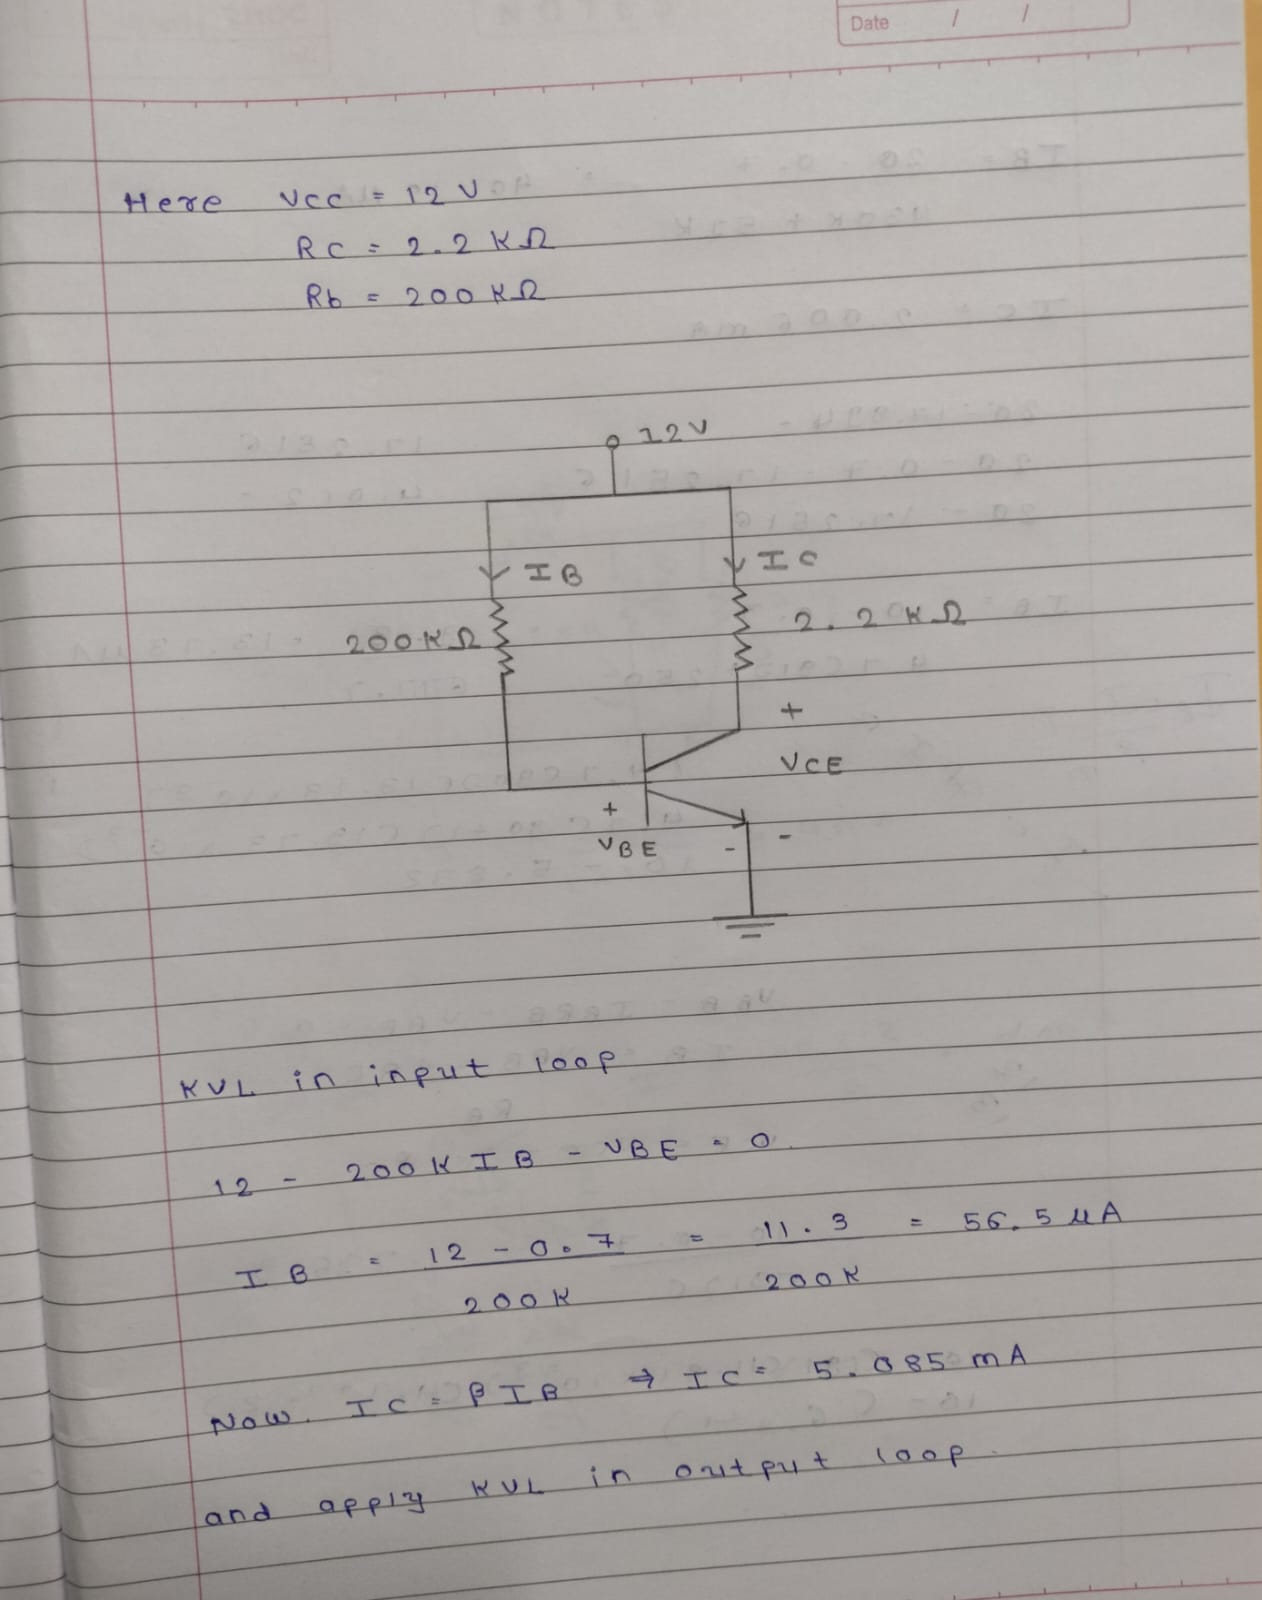 Date / /
Here Vcc = 12 V
RC = 2.2 KΩ
Rb = 200 KΩ
12V
IB
IC
200KΩ
2.2KΩ
+
VCE
+
VBE
-
-
KVL in input loop
12 - 200K IB - VBE = 0
IB = 12 - 0.7 / 200K = 11.3 / 200K = 56.5 μA
Now. IC = β IB ⇒ IC = 5.085 mA
and apply KVL in output loop.